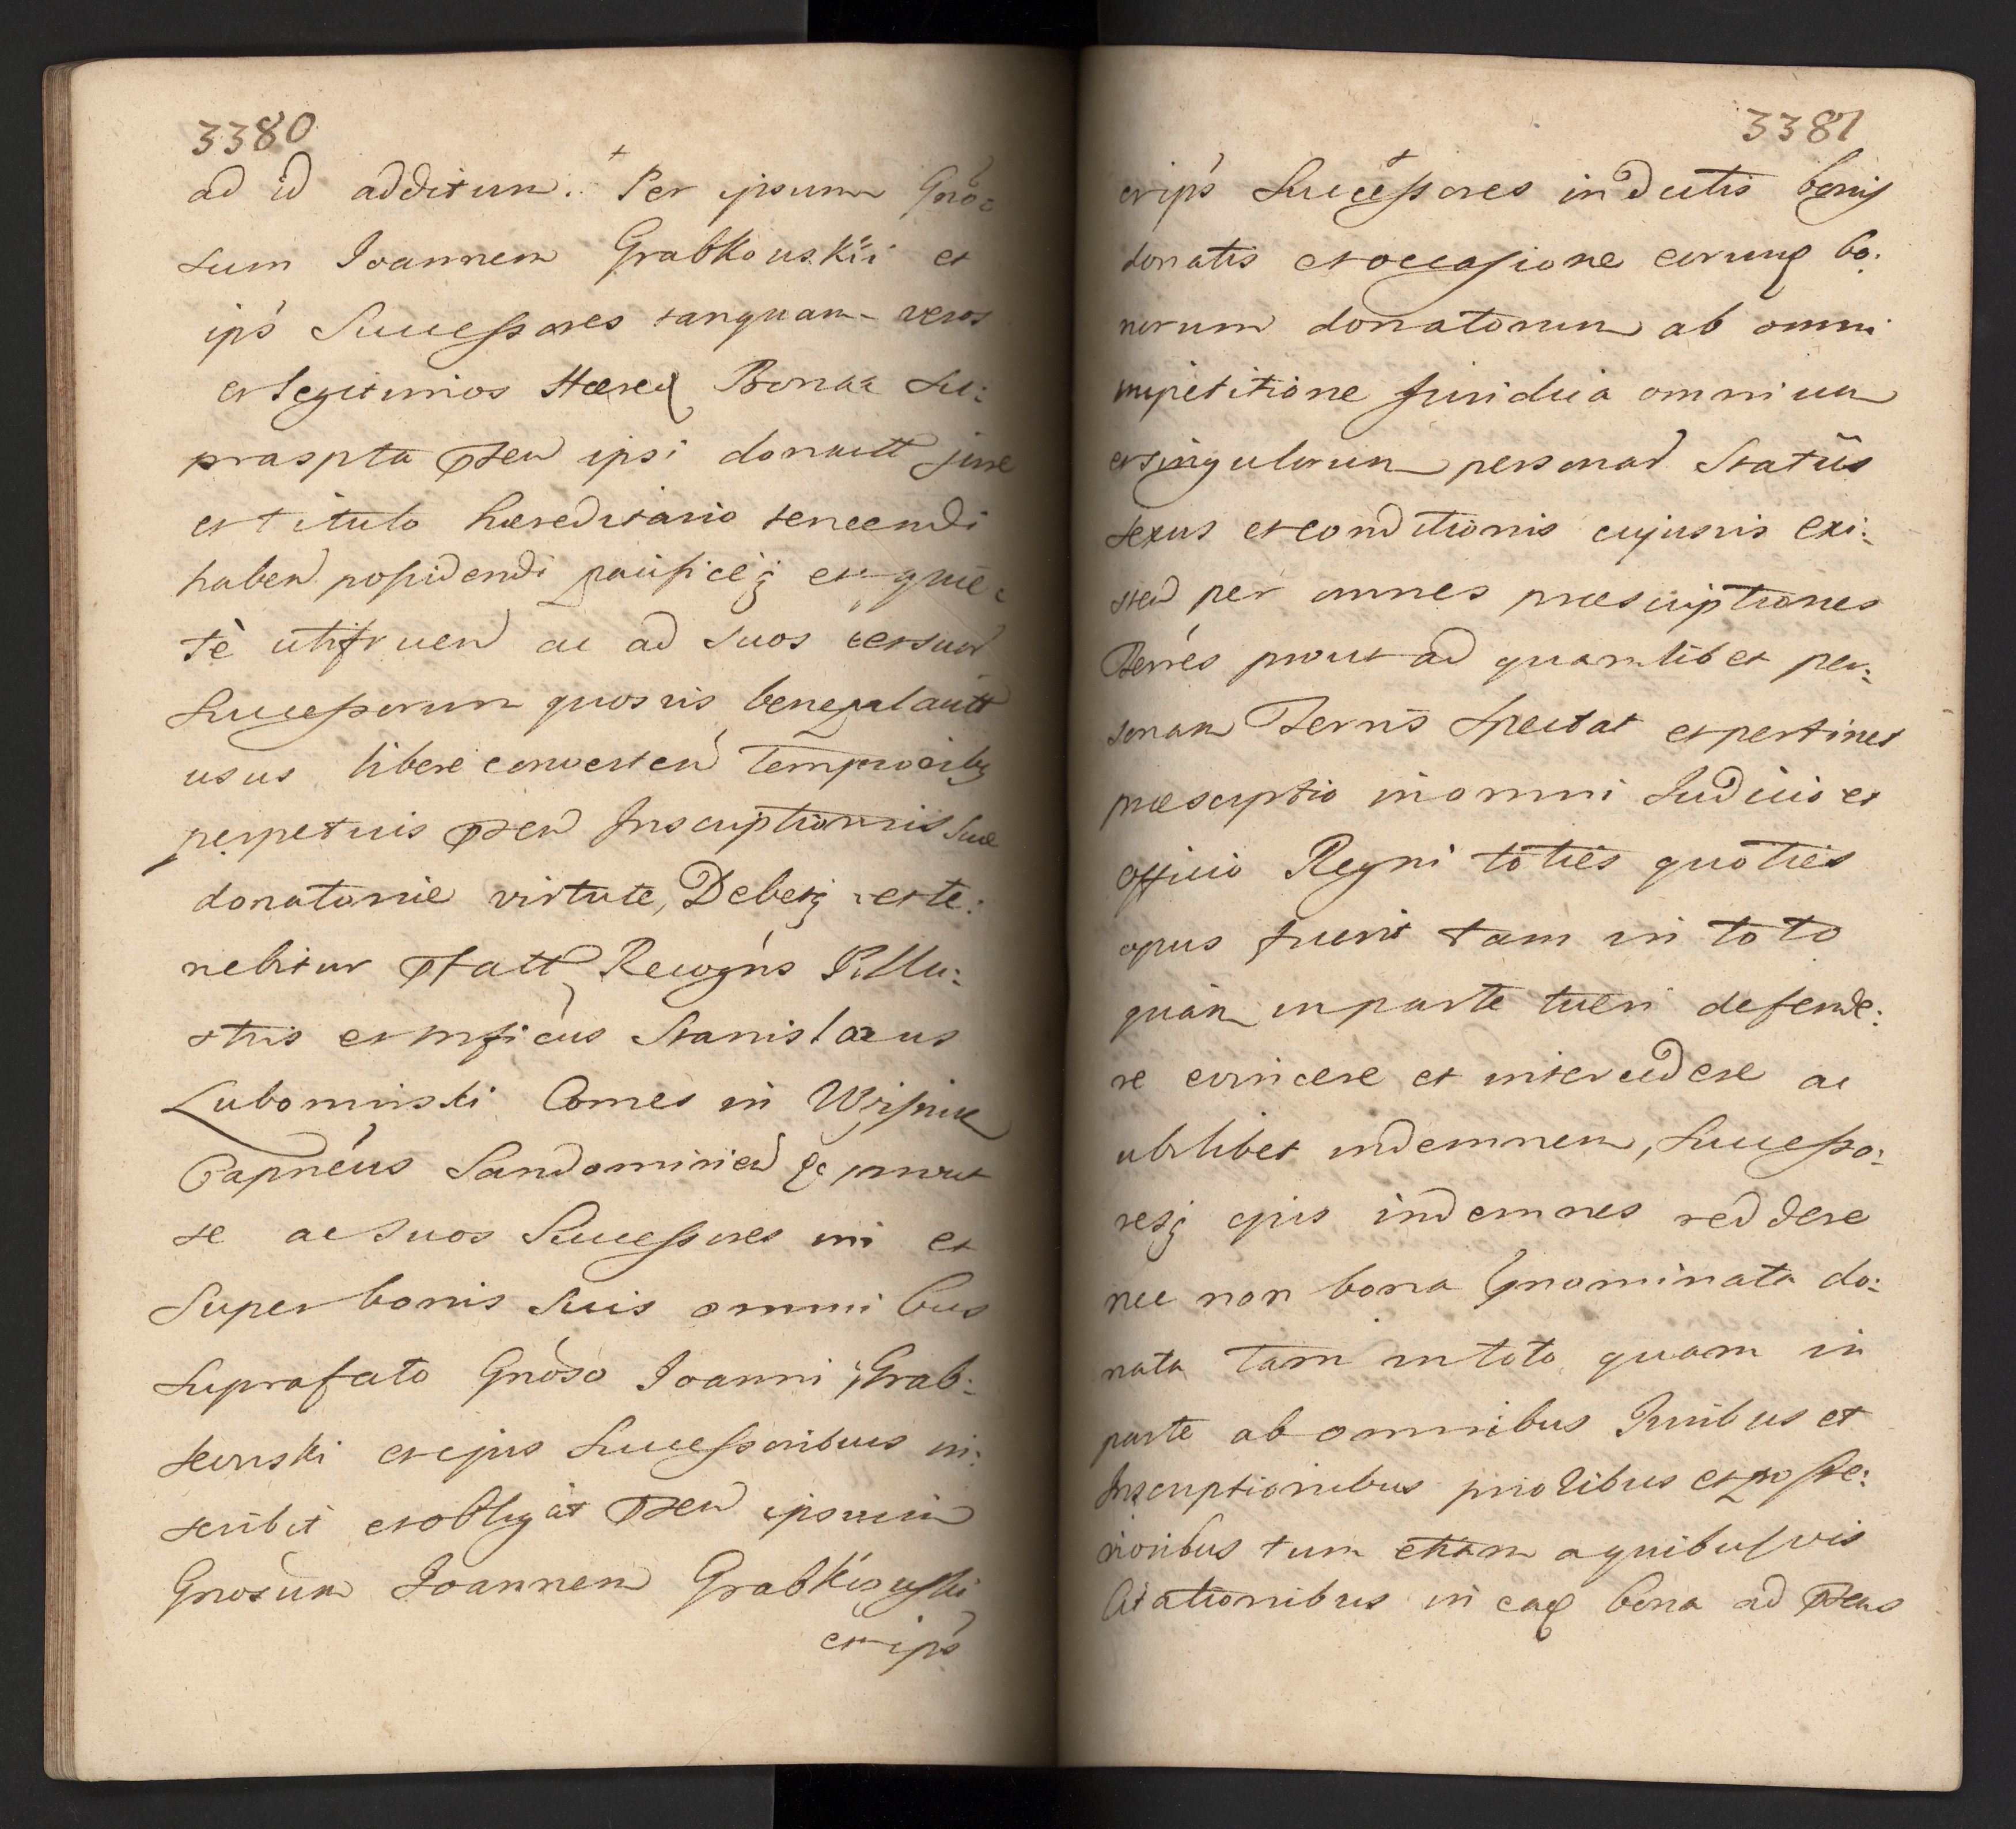 3380
ad id additum. Per ipsum Gnō:
sum Joannem Grabkouskii et
ips Successores tanquam veros
et legitimos Hæred Bona Su:
praspta pten ipsi donavitt jure
et titulo hæreditario tenendi
haben possidendi pacificeq et quie:
tè utifruen ac ad suos et suor
Successorum quosvis beneplacitt
usus libere converten temporibq
perpetuis pten Inscriptionis suæ
donatoriæ virtute, Debetq et te:
nebitur pfatt Recogns Illu:
stris et Mficus Stanislaus
Lubomirski Comes in Wisnicz
Capnēus Sandomirien &c prout
se ac suos Successores in et
Super bonis suis omnibus
Suprafato Gnoso Joanni Grab:
kowski et ejus Successoribus in:
scribit et obligat pten ipsum
Gnosum Joannem Grabkowski
et ips
3381
et ips Successores in dictis bonis
donatis et occasione eorumq bo:
norum donatorum ab omni
impetitione Juridica omnium
et singulorum personar Statûs
sexus et conditionis cujusvis exi:
sten per omnes præscriptiones
Terrēs prout ad quamlibet per:
sonam Terris Spectat et pertinet
præscriptio in omni Judicio et
officio Regni toties quoties
opus fuerit tam in toto
quàm in parte tueri defende:
re evincere et intercedere ac
ubilibet indemnem, Successo:
resq ejus indemnes reddere
nec non bona Qnominata do:
nata tam in toto quam in
parte ab omnibus Juribus et
Inscriptionibus prioribus et poste:
rioribus tum etiam a quibusvis
Citationibus in eaq bona ad ptens